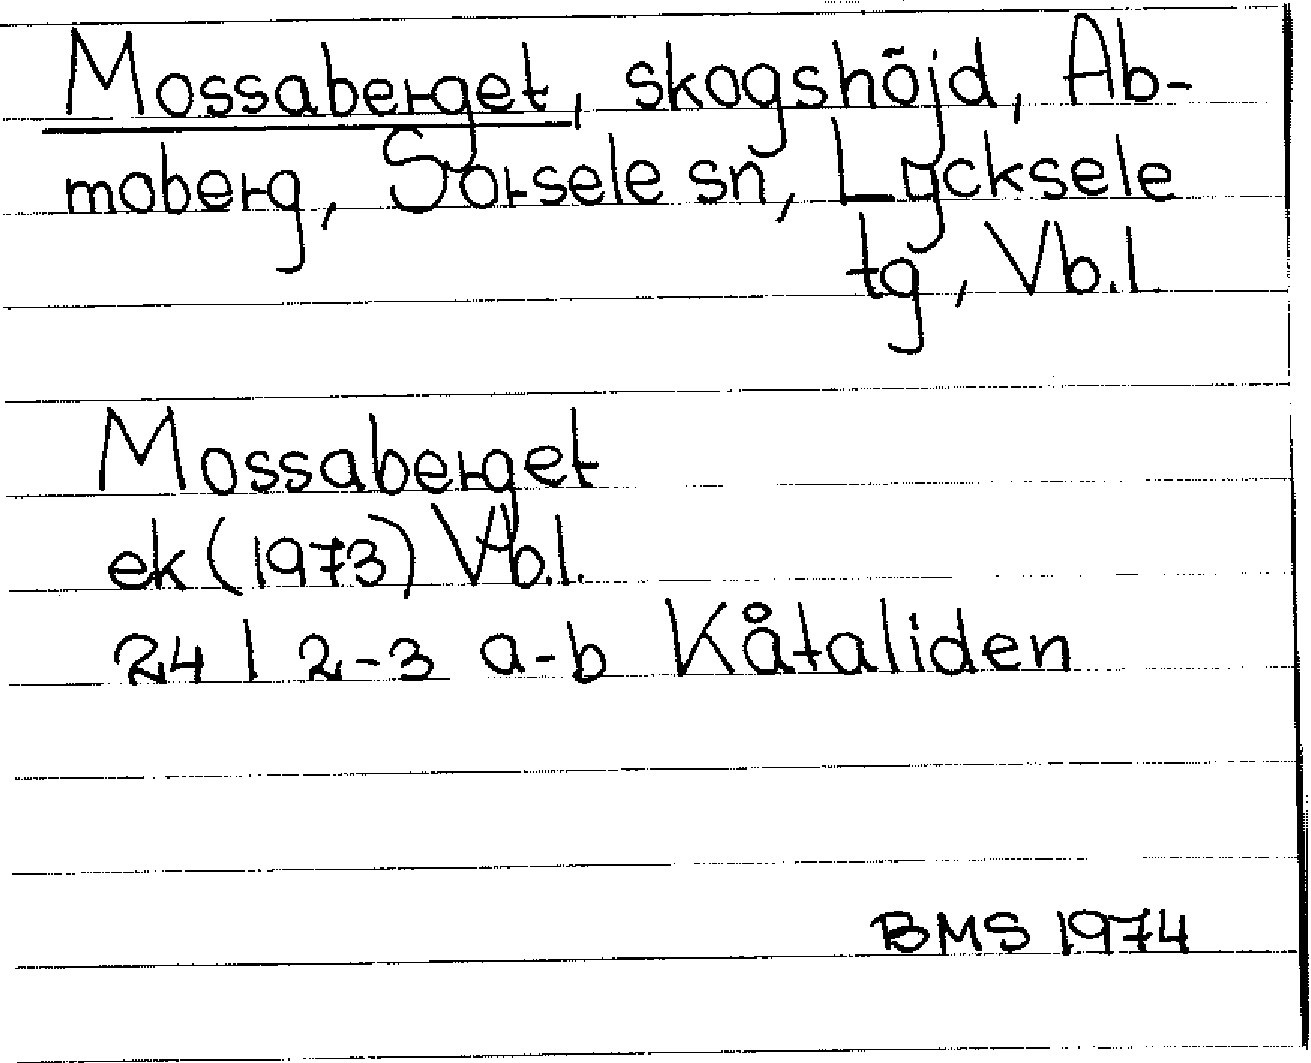 Mossaberget, skogshöjd, Ab-
moberg, Sorsele sn, Lycksele
tg, Vb.l.
Mossaberget
ek (1973) Vb.l.
24 I 2-3 a-b Kåtaliden
BMS 1974